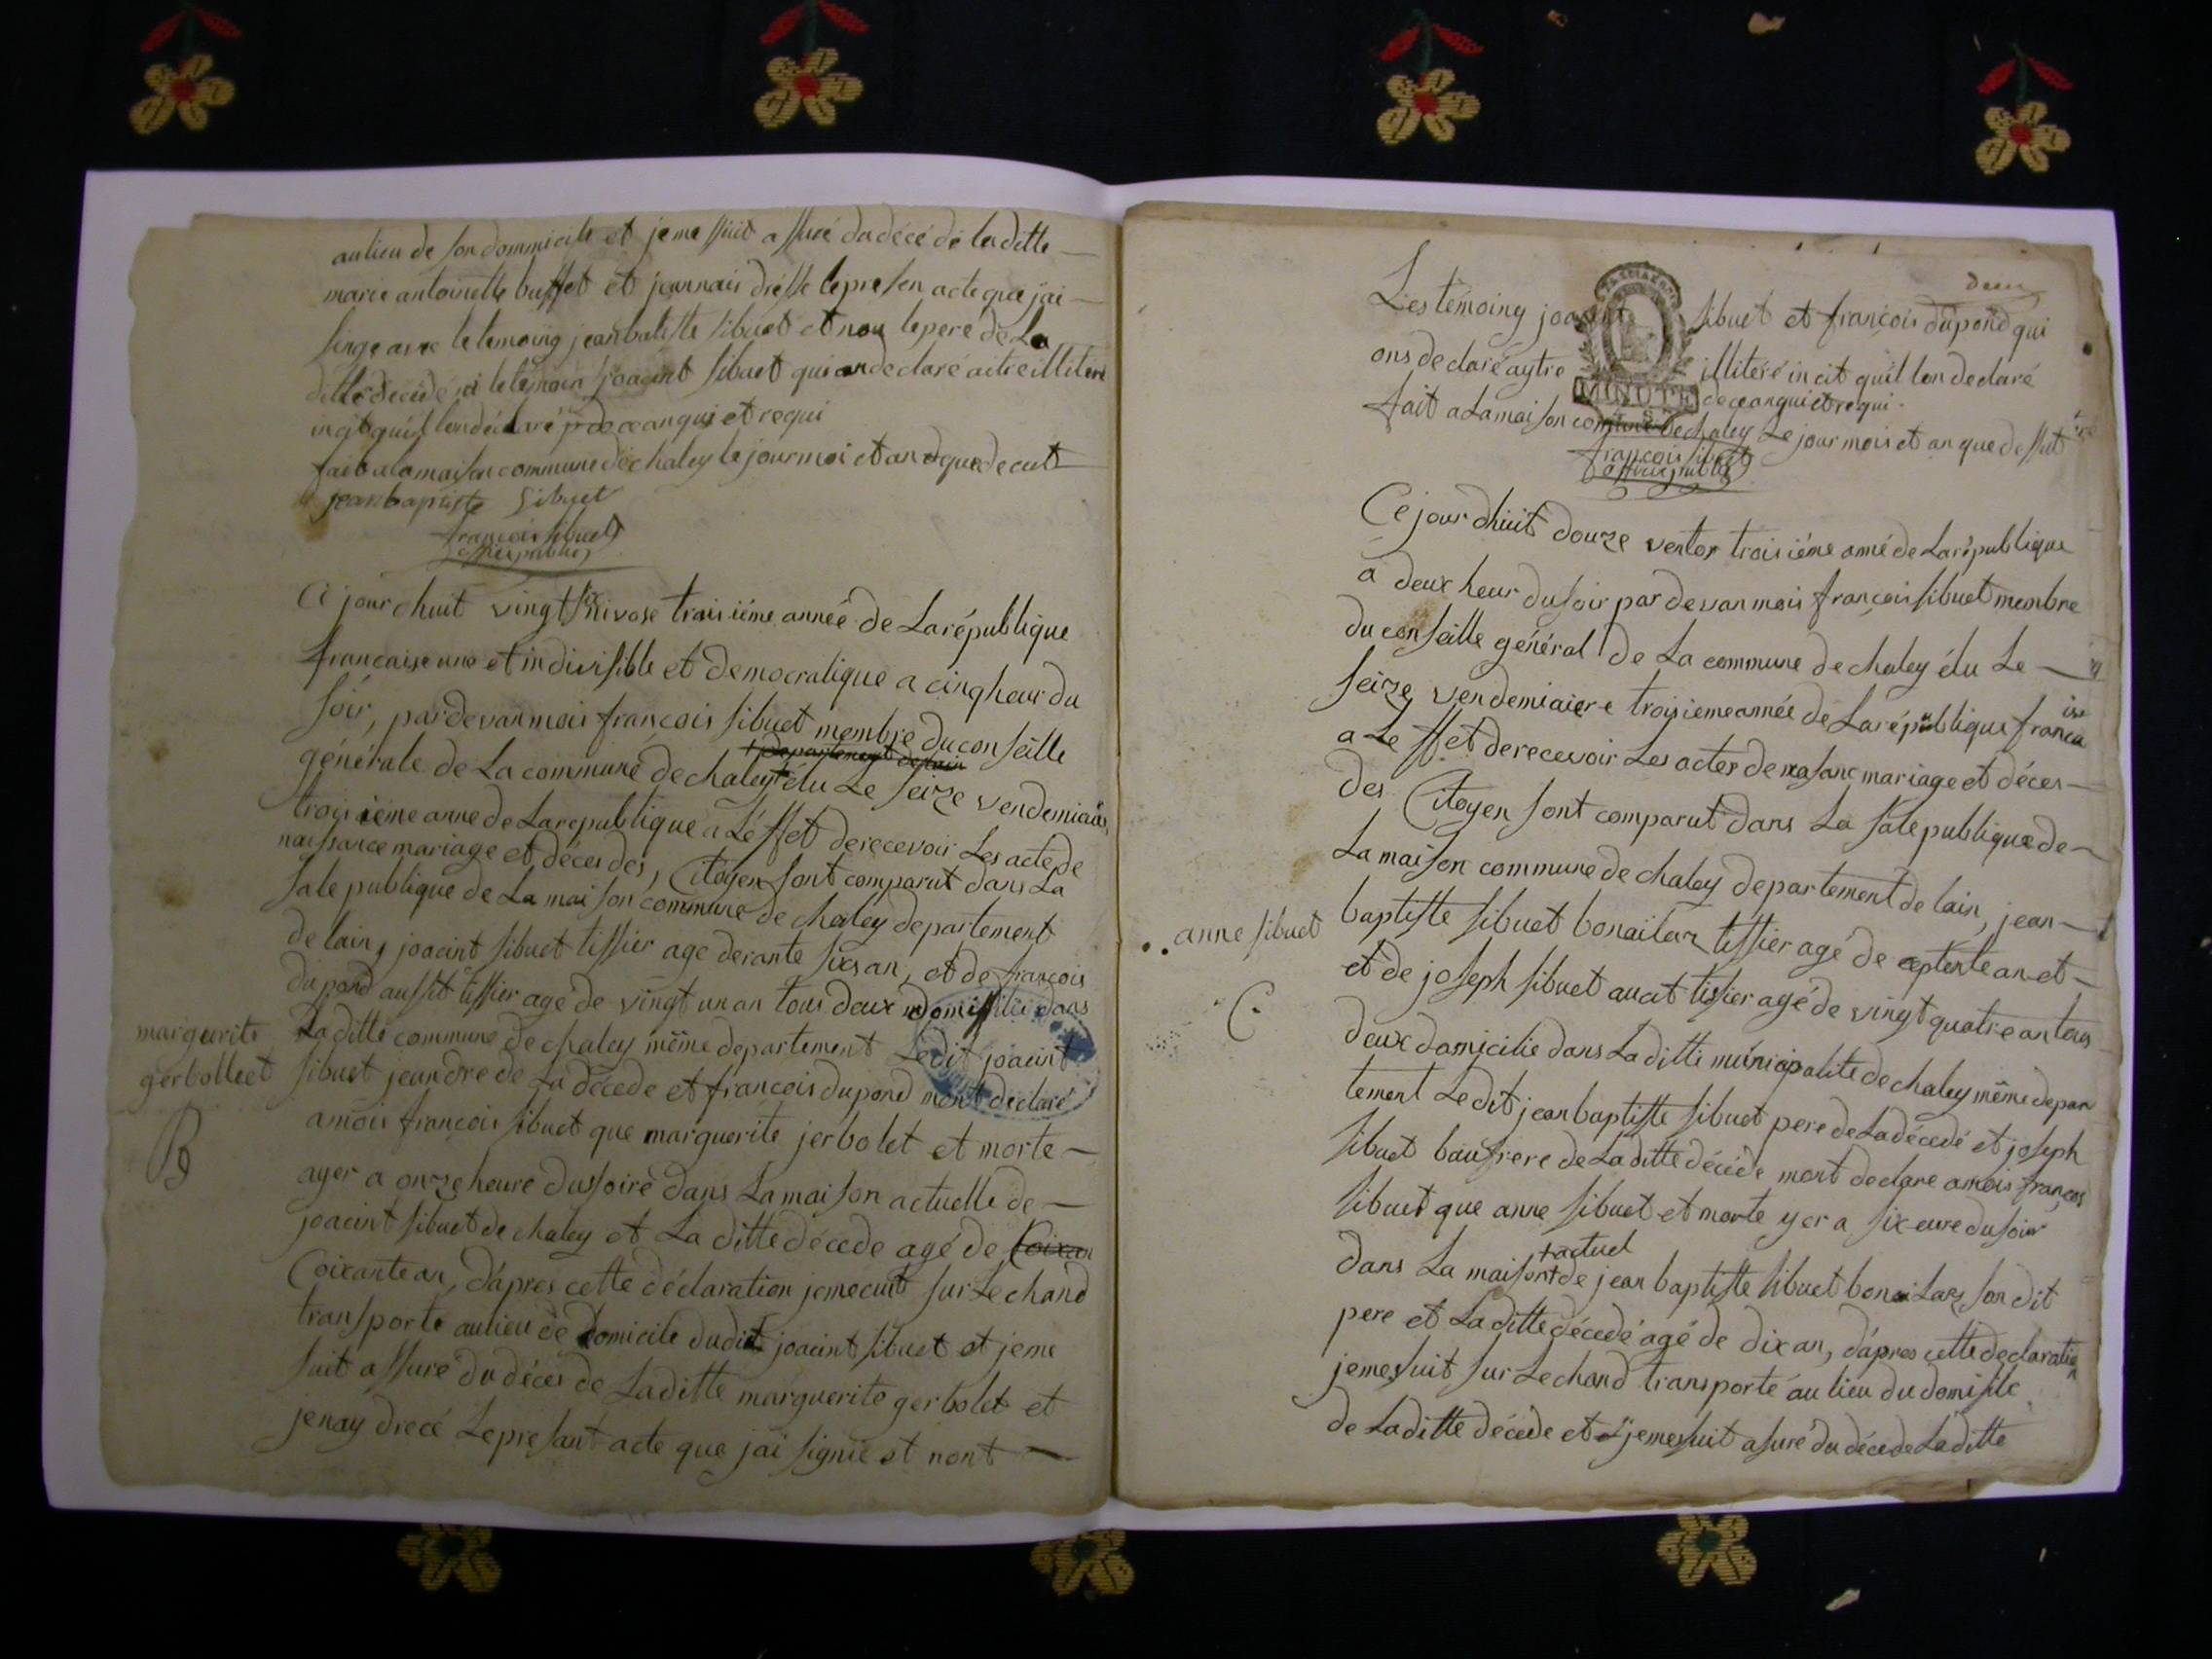 au lieu de son dommicile et je me suit assuré du décé dé la ditte
marie antoinette buffet et jennais drésse le presen acte que jai
singe avec le temoing jean batiste sibuet et non le pere de La
ditte décédé ni le témoin joacint sibuet qui on declaré aitre illitere
incit quil lon déclaré de ce anquis et requi
fait a la maison commune de chaley le jour moi et an que de cut
jean baptiste Sibuet
françois sibuet
officier public
Ce jour dhuit vingt six nivose troisiéme année de La république
francaise une et indivisible et democratique a cinq heur du
soir, par devan mois françois sibuet membre du conseille
+ departement de lain
générale de La commune de chaley + élu Le seize vendemiaire
troisiéme anne de La republique a Léffet de recevoir Les acte de
naissance mariage et déces des, Citoyen sont comparut dans La
sale publique de La maison commune de chaley departement
de lain, joacint sibuet tissier age de rante six an, et de françois
dupond aussit tissier agé de vingt un an tous deux domissilié dans
margurite
gerbolleet
B
La ditte commune de chaley même departement Le dit joacint
sibuet jeandre de La décede et françois dupond mont déclaré
amois françois sibuet que marguerite jerbolet et morte
ayer a onze heure du soire dans La maison actuelle de
joacint sibuet de chaley et La ditte décede agé de soixan
Coixante an, d'apres cette déclaration je me cuit sur Le chand
transporte au lieu de domicile dudit joacint sibuet et je me
suit assure du déces de La ditte marguerite gerbolet et
jenay drecé Le presant acte que jai signié et nont
deux
Les témoing joacint sibuet et françois dupond qui
ons declaré aytre illiteré incit quil lon declaré
MINUTE
de ce anquis et requi
fait a La maison comune de chaley Le jour mois et an que de ssut
françois sibuet
officier public
Ce jour dhuit douze ventos troisiéme anné de La république
a deux heur du soir par devan mois françois sibuet membre
du conseille général de La commune de chaley élu Le
seize vendemiaiere troisieme année de La république francaise
a Leffet de recevoir Les actes de nasanc mariage et déces
des Citoyen sont comparut dans La sale publique de
La maison commune de chaley departement de lain, jean
anne sibuet
C
baptiste sibuet bonailar tissier agé de cepterte an et
et de joseph sibuet aucit tissier agé de vingt quatre an tous
deux domicilie dans La ditte municipalite de chaley même depar
tement Le dit jean baptiste sibuet pere de La décedé et joseph
sibuet baufrere de La ditte décéde mont declare amois françois
sibuet que anne sibuet et morte yer a six eure du soir
+ actuel
dans La maison + de jean baptiste sibuet bonailar son dit
pere et La ditte décedé agé de dix an, d'apres cette declaration
je me suit sur Le chand transporté au lieu du domisile
de La ditte décéde et je me suit asuré du décé de La ditte